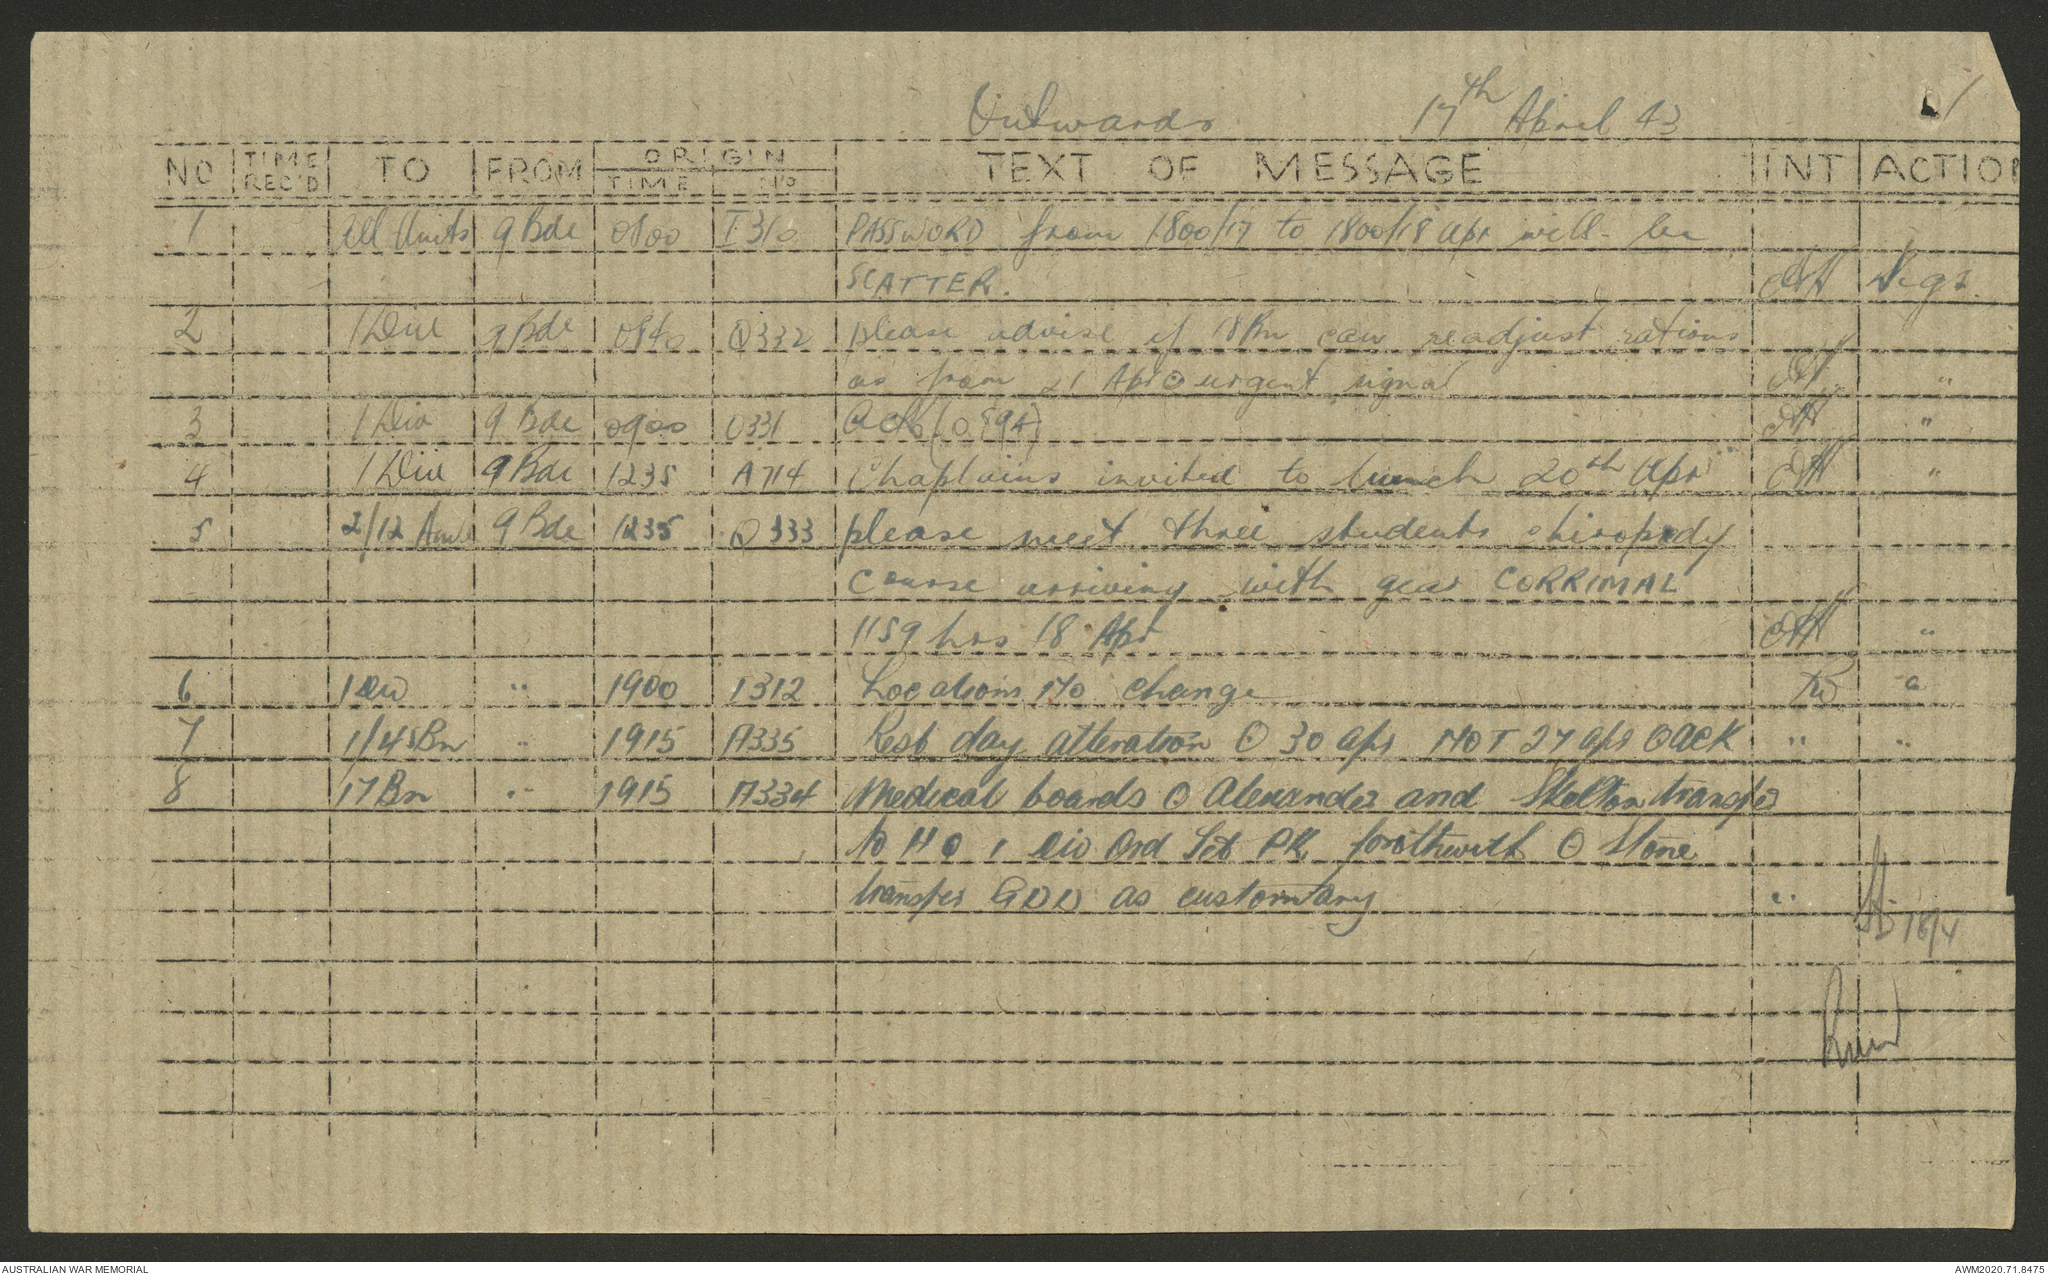 Outwards 17th April 43 1
NO TIME REC'D TO FROM ORIGIN TIME NO TEXT OF MESSAGE INT ACTION
1 All Units 9 Bde 0800 I310 PASSWORD from 1800/17 to 1800/18 Apr will be
SCATTER. Sigs.
2 1 Div 9 Bde 0840 Q332 please advise if 18 Bn can readjust rations
as from 21 Apr ⊙ urgent signal "
3 1 Div 9 Bde 0900 O331 ACK (0894) "
4 1 Div 9 Bde 1235 A714 Chaplains invited to lunch 20th Apr "
5 2/12 Amb 9 Bde 1235 Q333 please meet three students chiropody
course arriving with gear CORRIMAL
1159 hrs 18 Apr "
6 1 Div " 1900 I312 Locations No change
7 1/45 Bn " 1915 A335 Rest day alteration ⊙ 30 apr NOT 27 apr ⊙ ACK " "
8 17 Bn " 1915 A334 Medical boards ⊙ Alexander and Skelton transfer
to HQ 1 Div Ord PK forthwith ⊙ Stone
transfer GDD as customary "
18/4
AUSTRALIAN WAR MEMORIAL AWM2020.71.8475